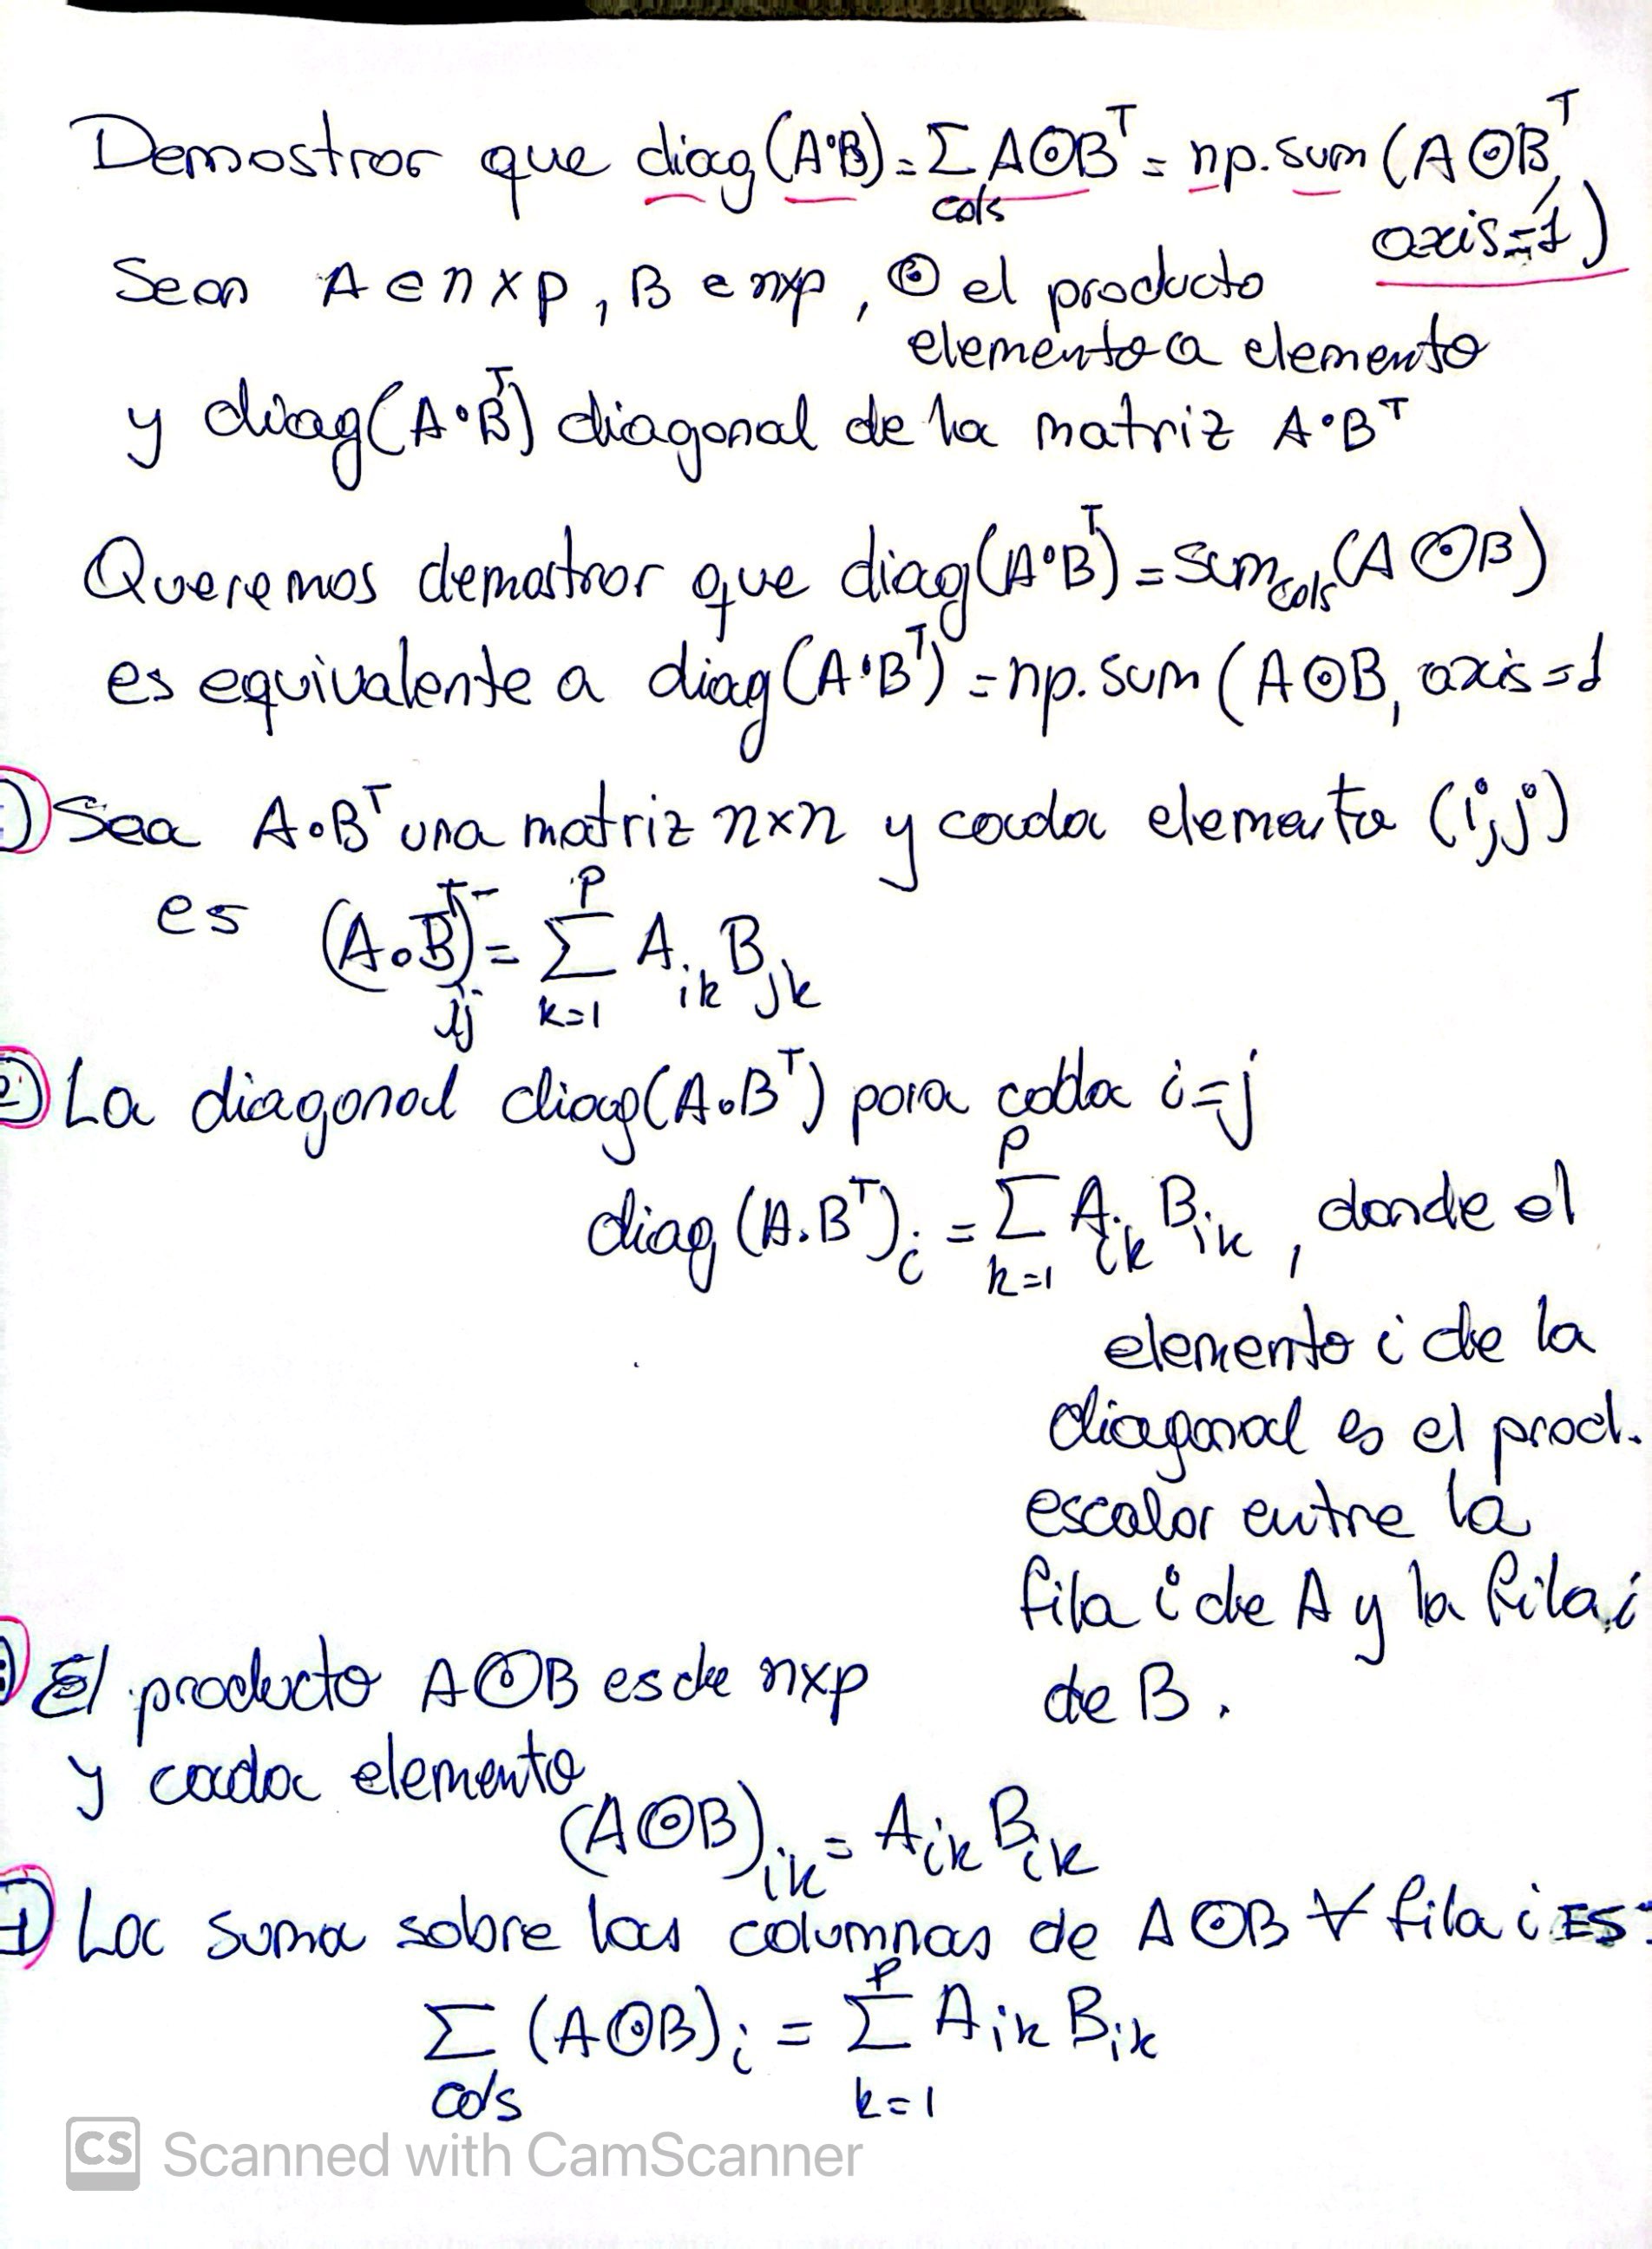 Demostrar que diag(A·B)=Σ A⊙Bᵀ = np.sum(A⊙Bᵀ,
cols
axis=1)
Sean A ∈ n×p, B ∈ n×p, ⊙ el producto
elemento a elemento
y diag(A·Bᵀ) diagonal de la matriz A·Bᵀ
Queremos demostrar que diag(A·Bᵀ)=Sum_cols(A⊙B)
es equivalente a diag(A·Bᵀ)=np.sum(A⊙B, axis=1
) Sea A·Bᵀ una matriz n×n y cada elemento (i,j)
es (A·Bᵀ)_ij = Σ_{k=1}^{p} A_ik B_jk
2) La diagonal diag(A·Bᵀ) para cada i=j
diag(A·Bᵀ)_i = Σ_{k=1}^{p} A_ik B_ik, donde el
elemento i de la
diagonal es el prod.
escalar entre la
fila i de A y la fila i
de B.
) El producto A⊙B es de n×p
y cada elemento
(A⊙B)_ik = A_ik B_ik
) La suma sobre las columnas de A⊙B ∀ fila i ES:
Σ_cols (A⊙B)_i = Σ_{k=1}^{p} A_ik B_ik
CS Scanned with CamScanner